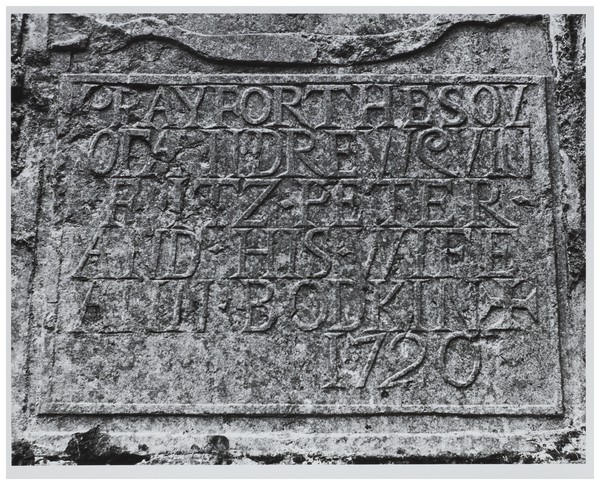 PRAY FOR THE SOV
OF ANDREW
FITZ·PETER·
AND·HIS·WIFE
BODKIN
1720